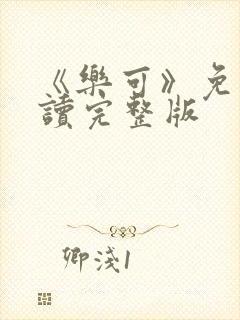 《樂可》免
讀完整版
卿淺1